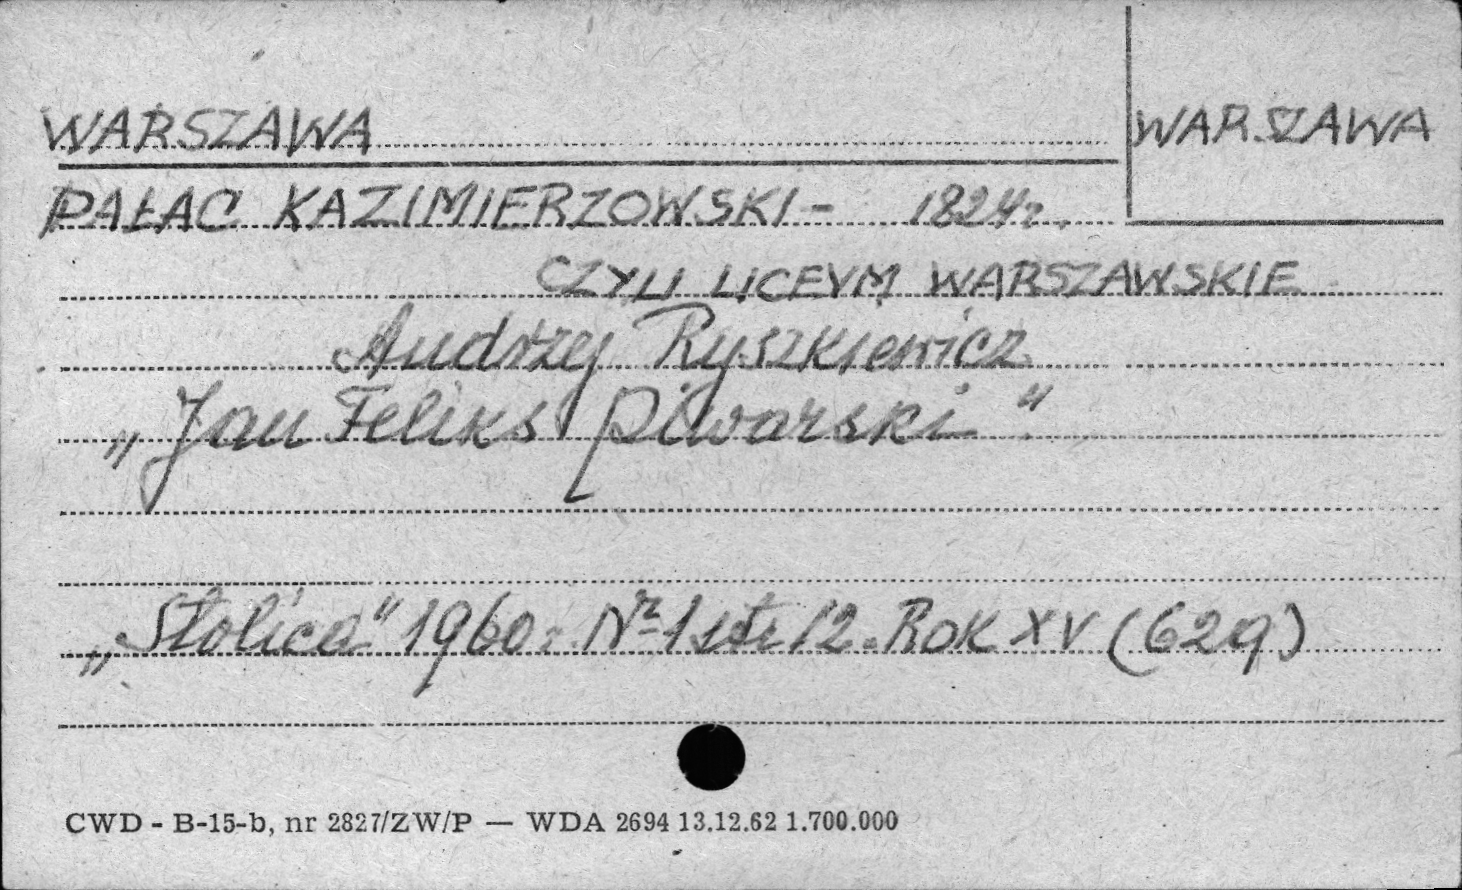 WARSZAWA
WARSZAWA
PAŁAC KAZIMIERZOWSKI - 1824r.
CZYLI LICEVM WARSZAWSKIE
Andrzej Ryszkiewicz
„Jan Feliks Piwarski"
„Stolica" 1960r. Nr 1 str 12. Rok XV (629)
CWD - B-15-b, nr 2827/ZW/P — WDA 2694 13.12.62 1.700.000